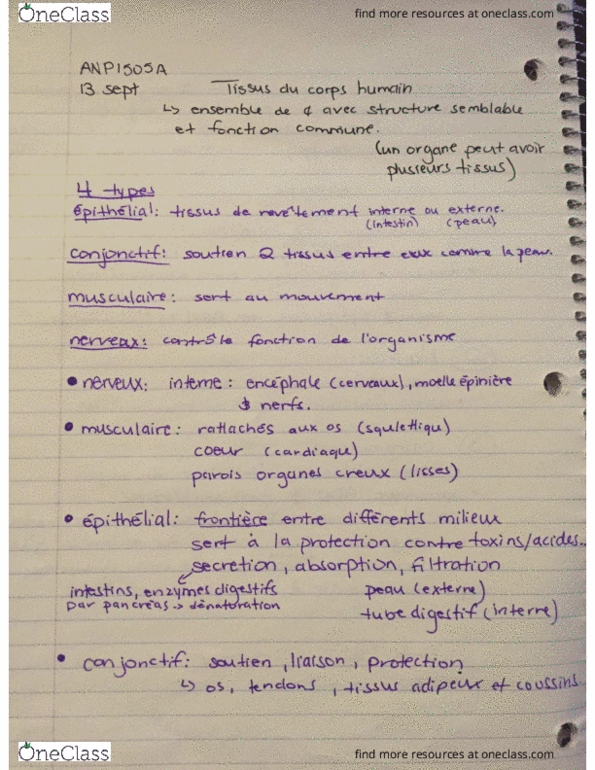 OneClass
find more resources at oneclass.com
ANP1505A
13 sept Tissus du corps humain
↳ ensemble de ¢ avec structure semblable
et fonction commune.
(un organe peut avoir
plusieurs tissus)
4 types
épithélial: tissus de revêtement interne ou externe.
(intestin) (peau)
conjonctif: soutien 2 tissus entre eux comme la peau.
musculaire: sert au mouvement
nerveux: contrôle fonction de l'organisme
• nerveux: interne: encéphale (cerveaux), moelle épinière
& nerfs.
• musculaire: rattachés aux os (squlettiqu)
coeur (cardiaque)
parois organes creux (lisses)
• épithélial: frontière entre différents milieux
sert à la protection contre toxins/acides..
secretion, absorption, filtration
intestins, enzymes digestifs peau (externe)
par pancréas → dénaturation
tube digestif (interne)
• conjonctif: soutien, liaison, protection
↳ os, tendons, tissus adipeux et coussins
OneClass
find more resources at oneclass.com